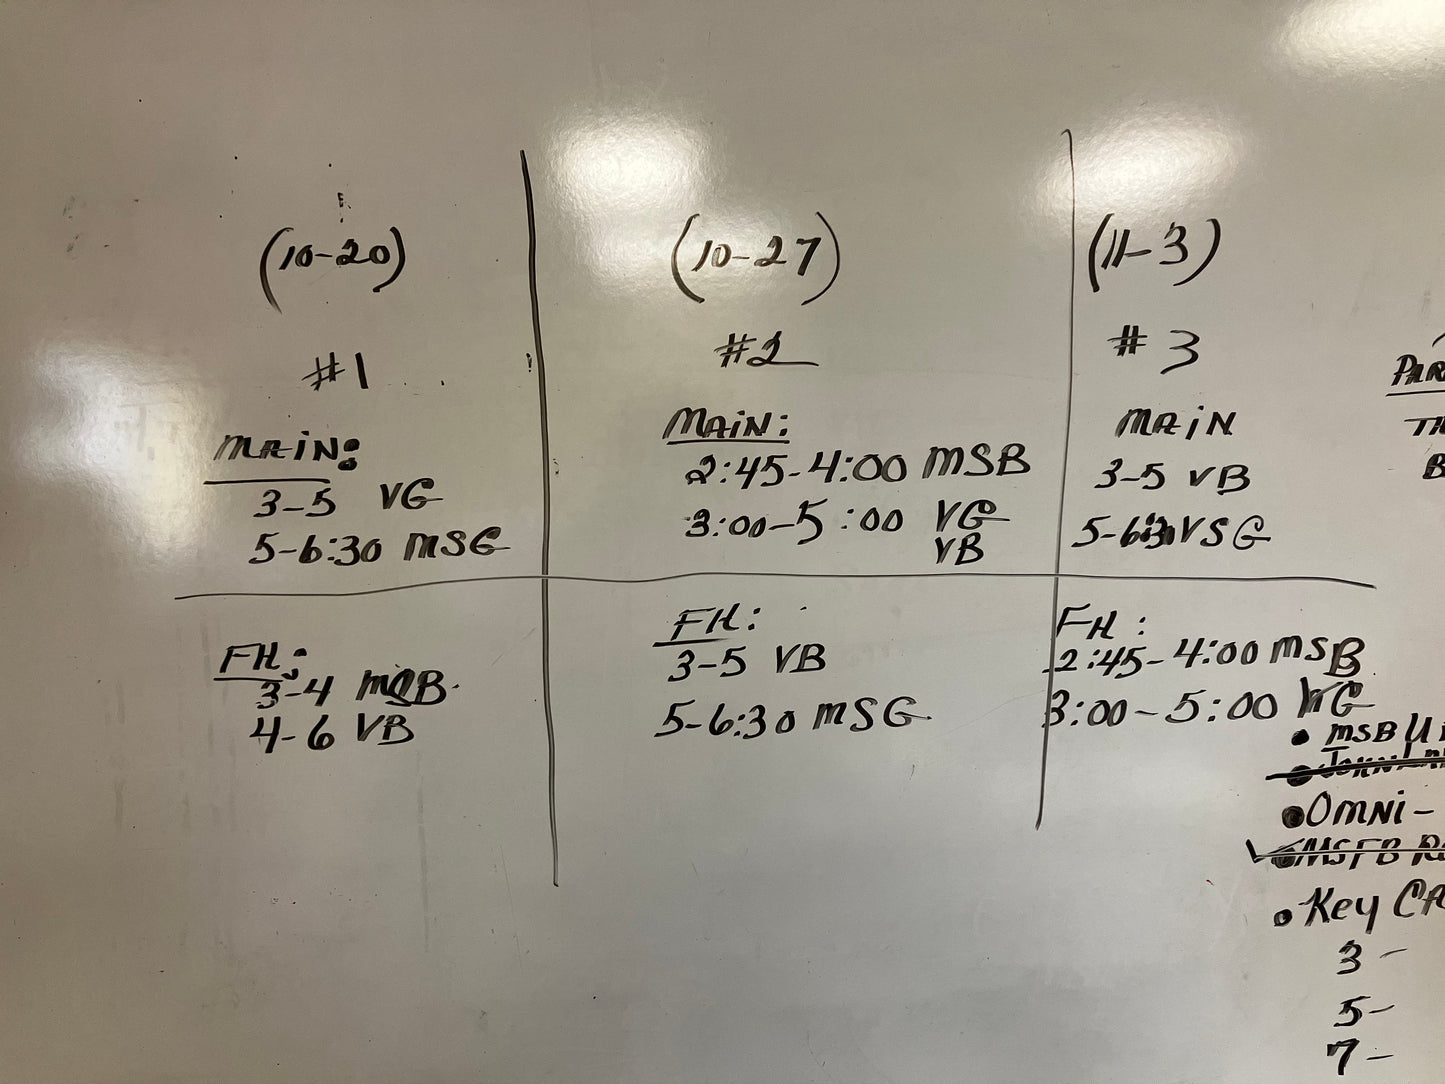 (10-20)
#1
MAIN:
3-5 VG
5-6:30 MSG
FH:
3-4 MSB
4-6 VB
(10-27)
#2
MAIN:
2:45-4:00 MSB
3:00-5:00 VG
VB
FH:
3-5 VB
5-6:30 MSG
(11-3)
#3
MAIN
3-5 VB
5-6:30 VSG
FH:
2:45-4:00 MSB
3:00-5:00 VG
PAR
TH
B
• MSB U
• OMNI-
• MSFB R
• Key CA
3-
5-
7-